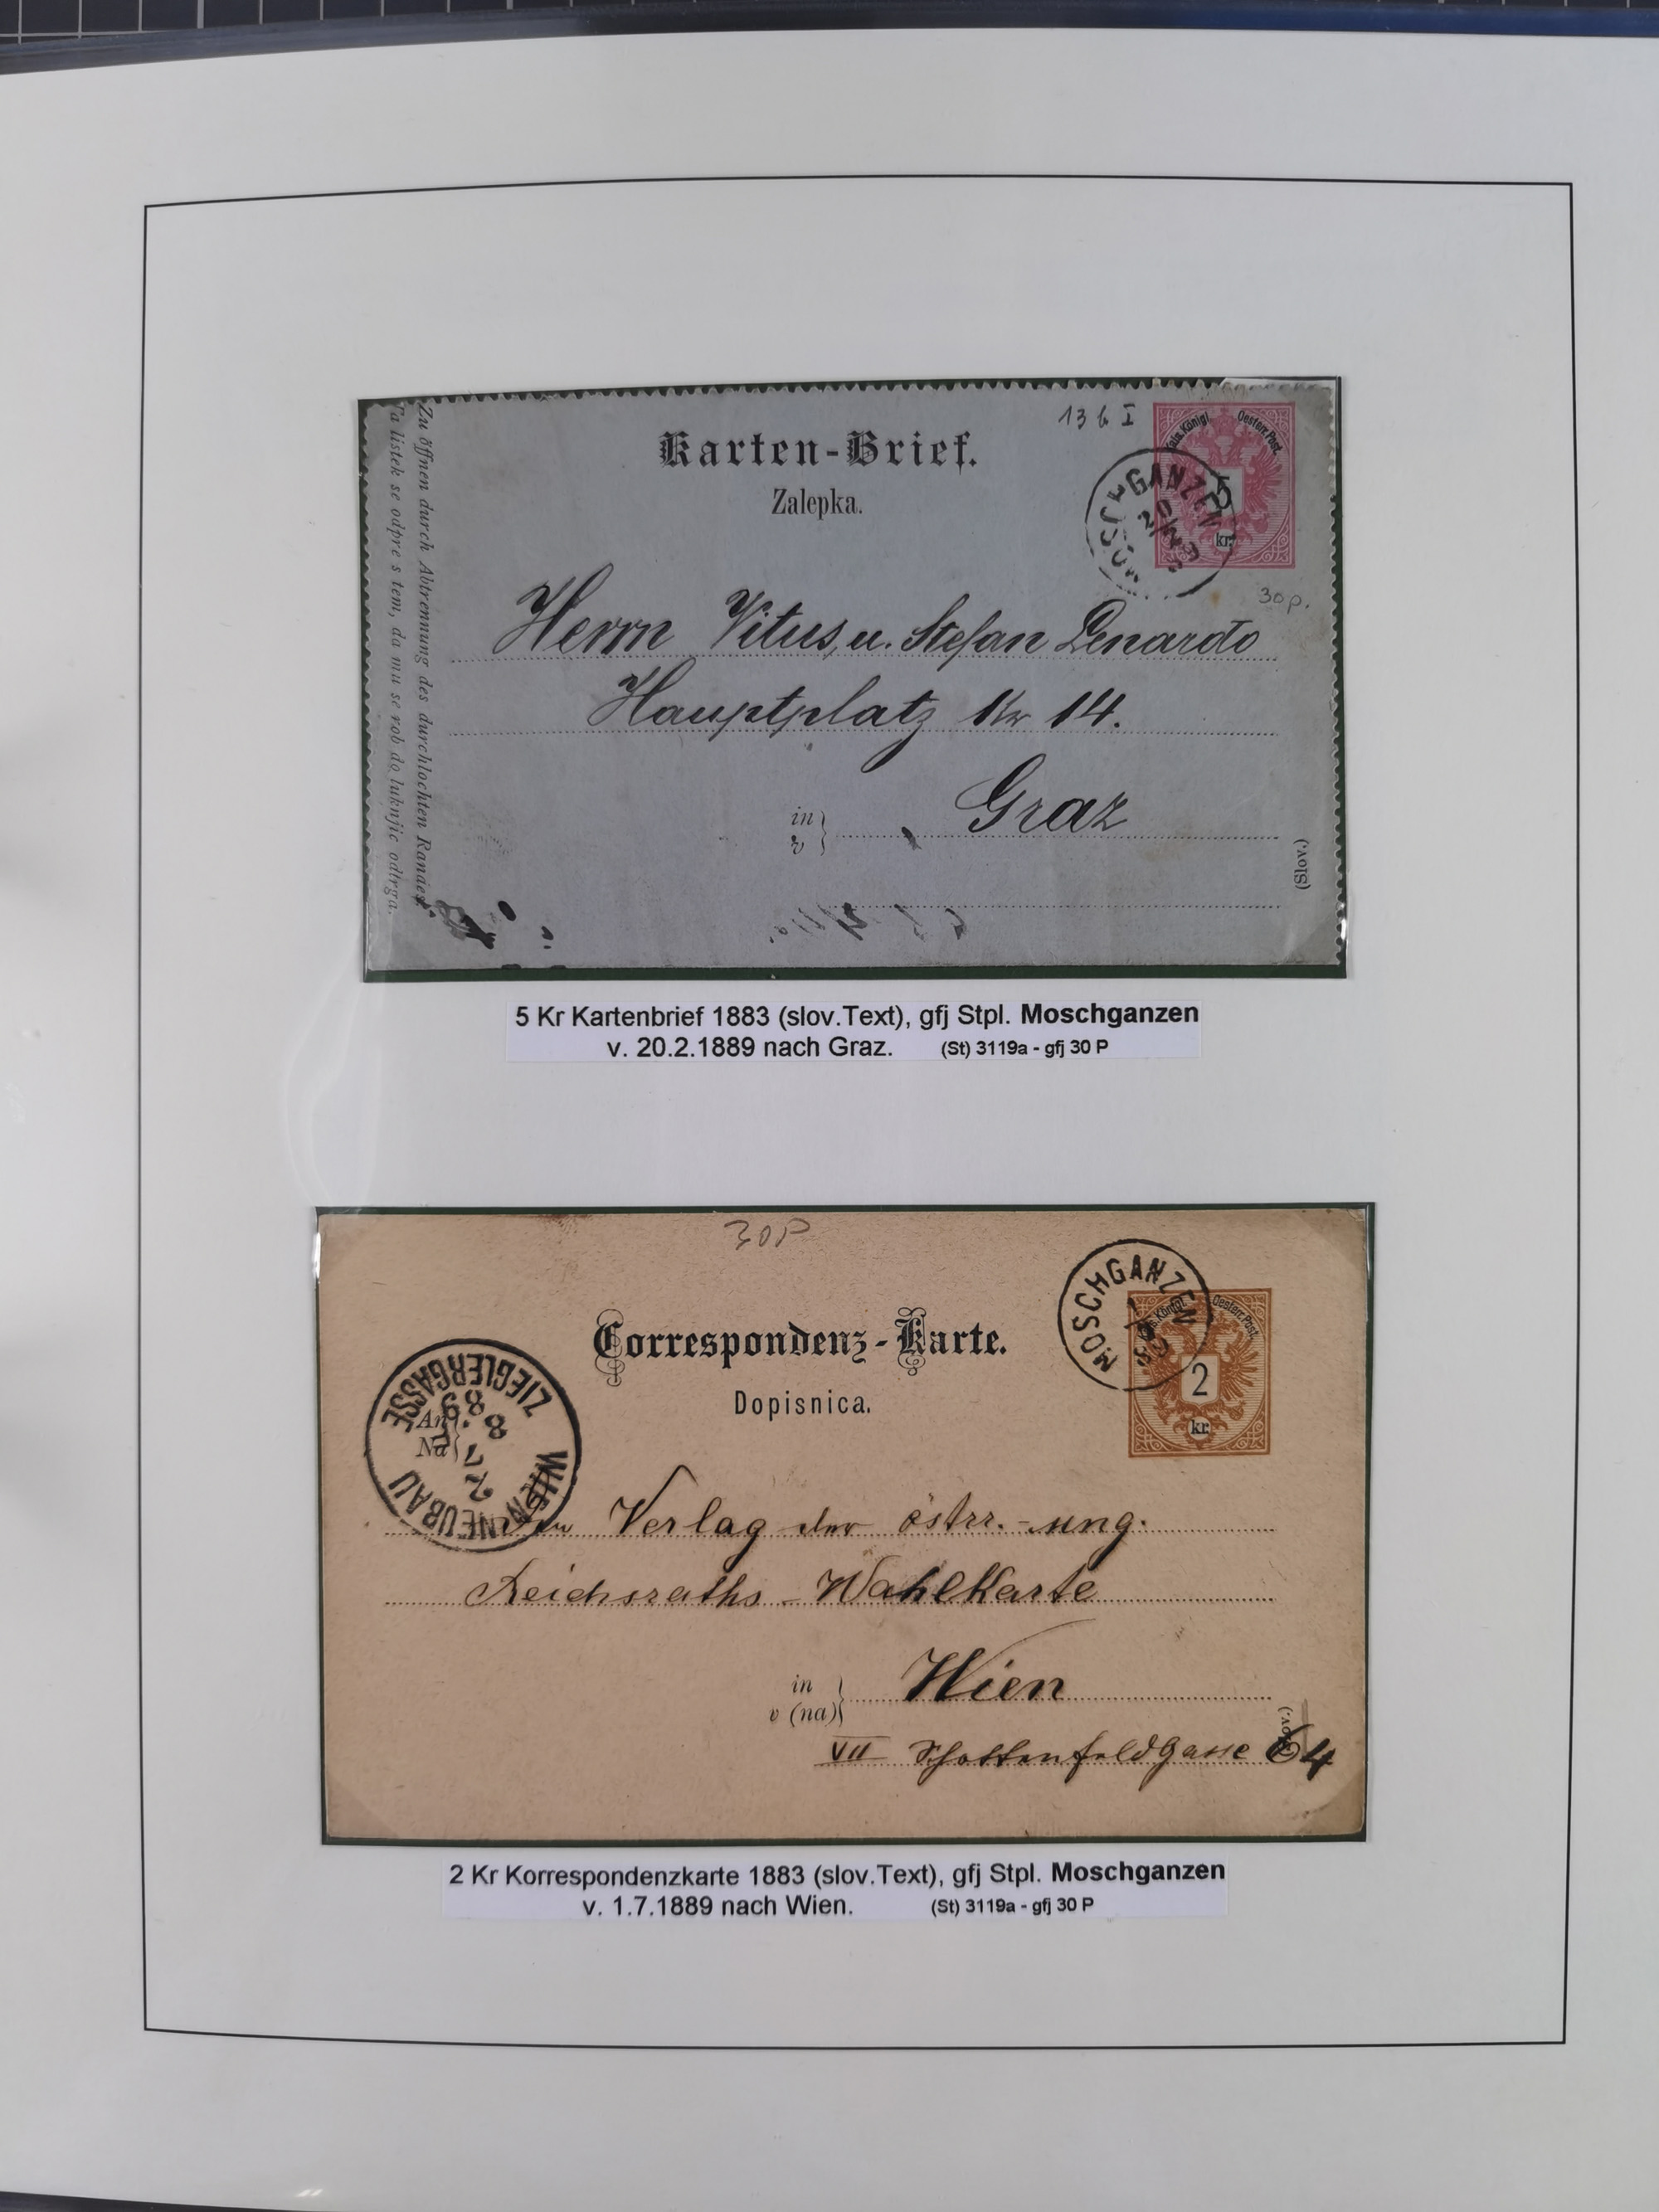 13 b I
Karten-Brief.
Zalepka.
Kais. Königl. Oesterr. Post.
5
kr.
MOSCHGANZEN
20/2 89
30 p.
Zu öffnen durch Abtrennung des durchlochten Randes.
Ta listek se odpre s tem, da mu se rob do luknjic odtrga.
Herrn Vitus, u. Stefan Lenardo
Hauptplatz Nr 14.
in
v
Graz
(Slov.)
5 Kr Kartenbrief 1883 (slov.Text), gfj Stpl. Moschganzen
v. 20.2.1889 nach Graz. (St) 3119a - gfj 30 P
30P
MOSCHGANZEN
Correspondenz-Karte.
Dopisnica.
Kais. Königl. Oesterr. Post.
2
kr.
WIEN NEUBAU
ZIEGLERGASSE
2 7 8 89
An
Na
Verlag der östrr.-ung.
Reichsraths-Wahlkarte
in
v (na)
Wien
VII Schottenfeldgasse 64
2 Kr Korrespondenzkarte 1883 (slov.Text), gfj Stpl. Moschganzen
v. 1.7.1889 nach Wien. (St) 3119a - gfj 30 P